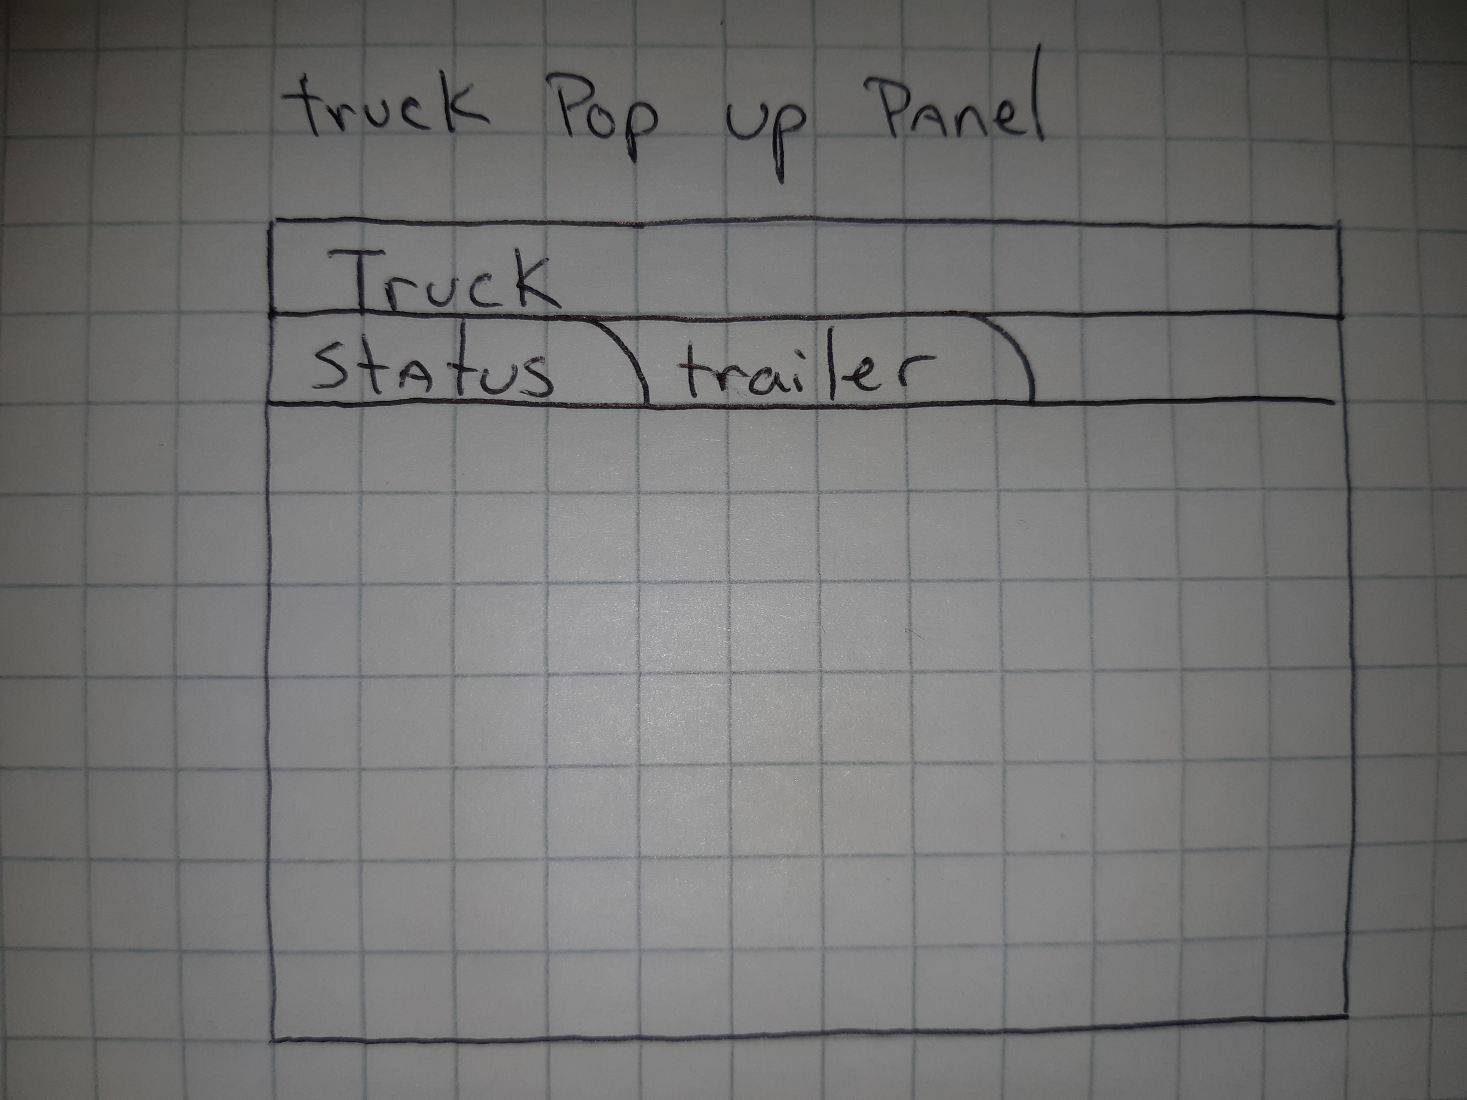 truck Pop up Panel
Truck
Status trailer